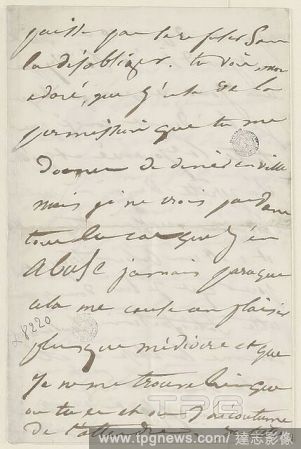 puisse pas la refuser sans
la désobliger. tu vois, mon
adoré, que j'use de la
permission que tu me
donnes de dîner en ville
mais je ne crois pas dans
tous les cas que j'en
abuse jamais parce que
cela me cause un plaisir
plus que médiocre et que
je ne me trouve bien que
où tu es et où j'ai coutume
de t'attendre
8220
TPG
IMAGES
www.tpgnews.com/達志影像